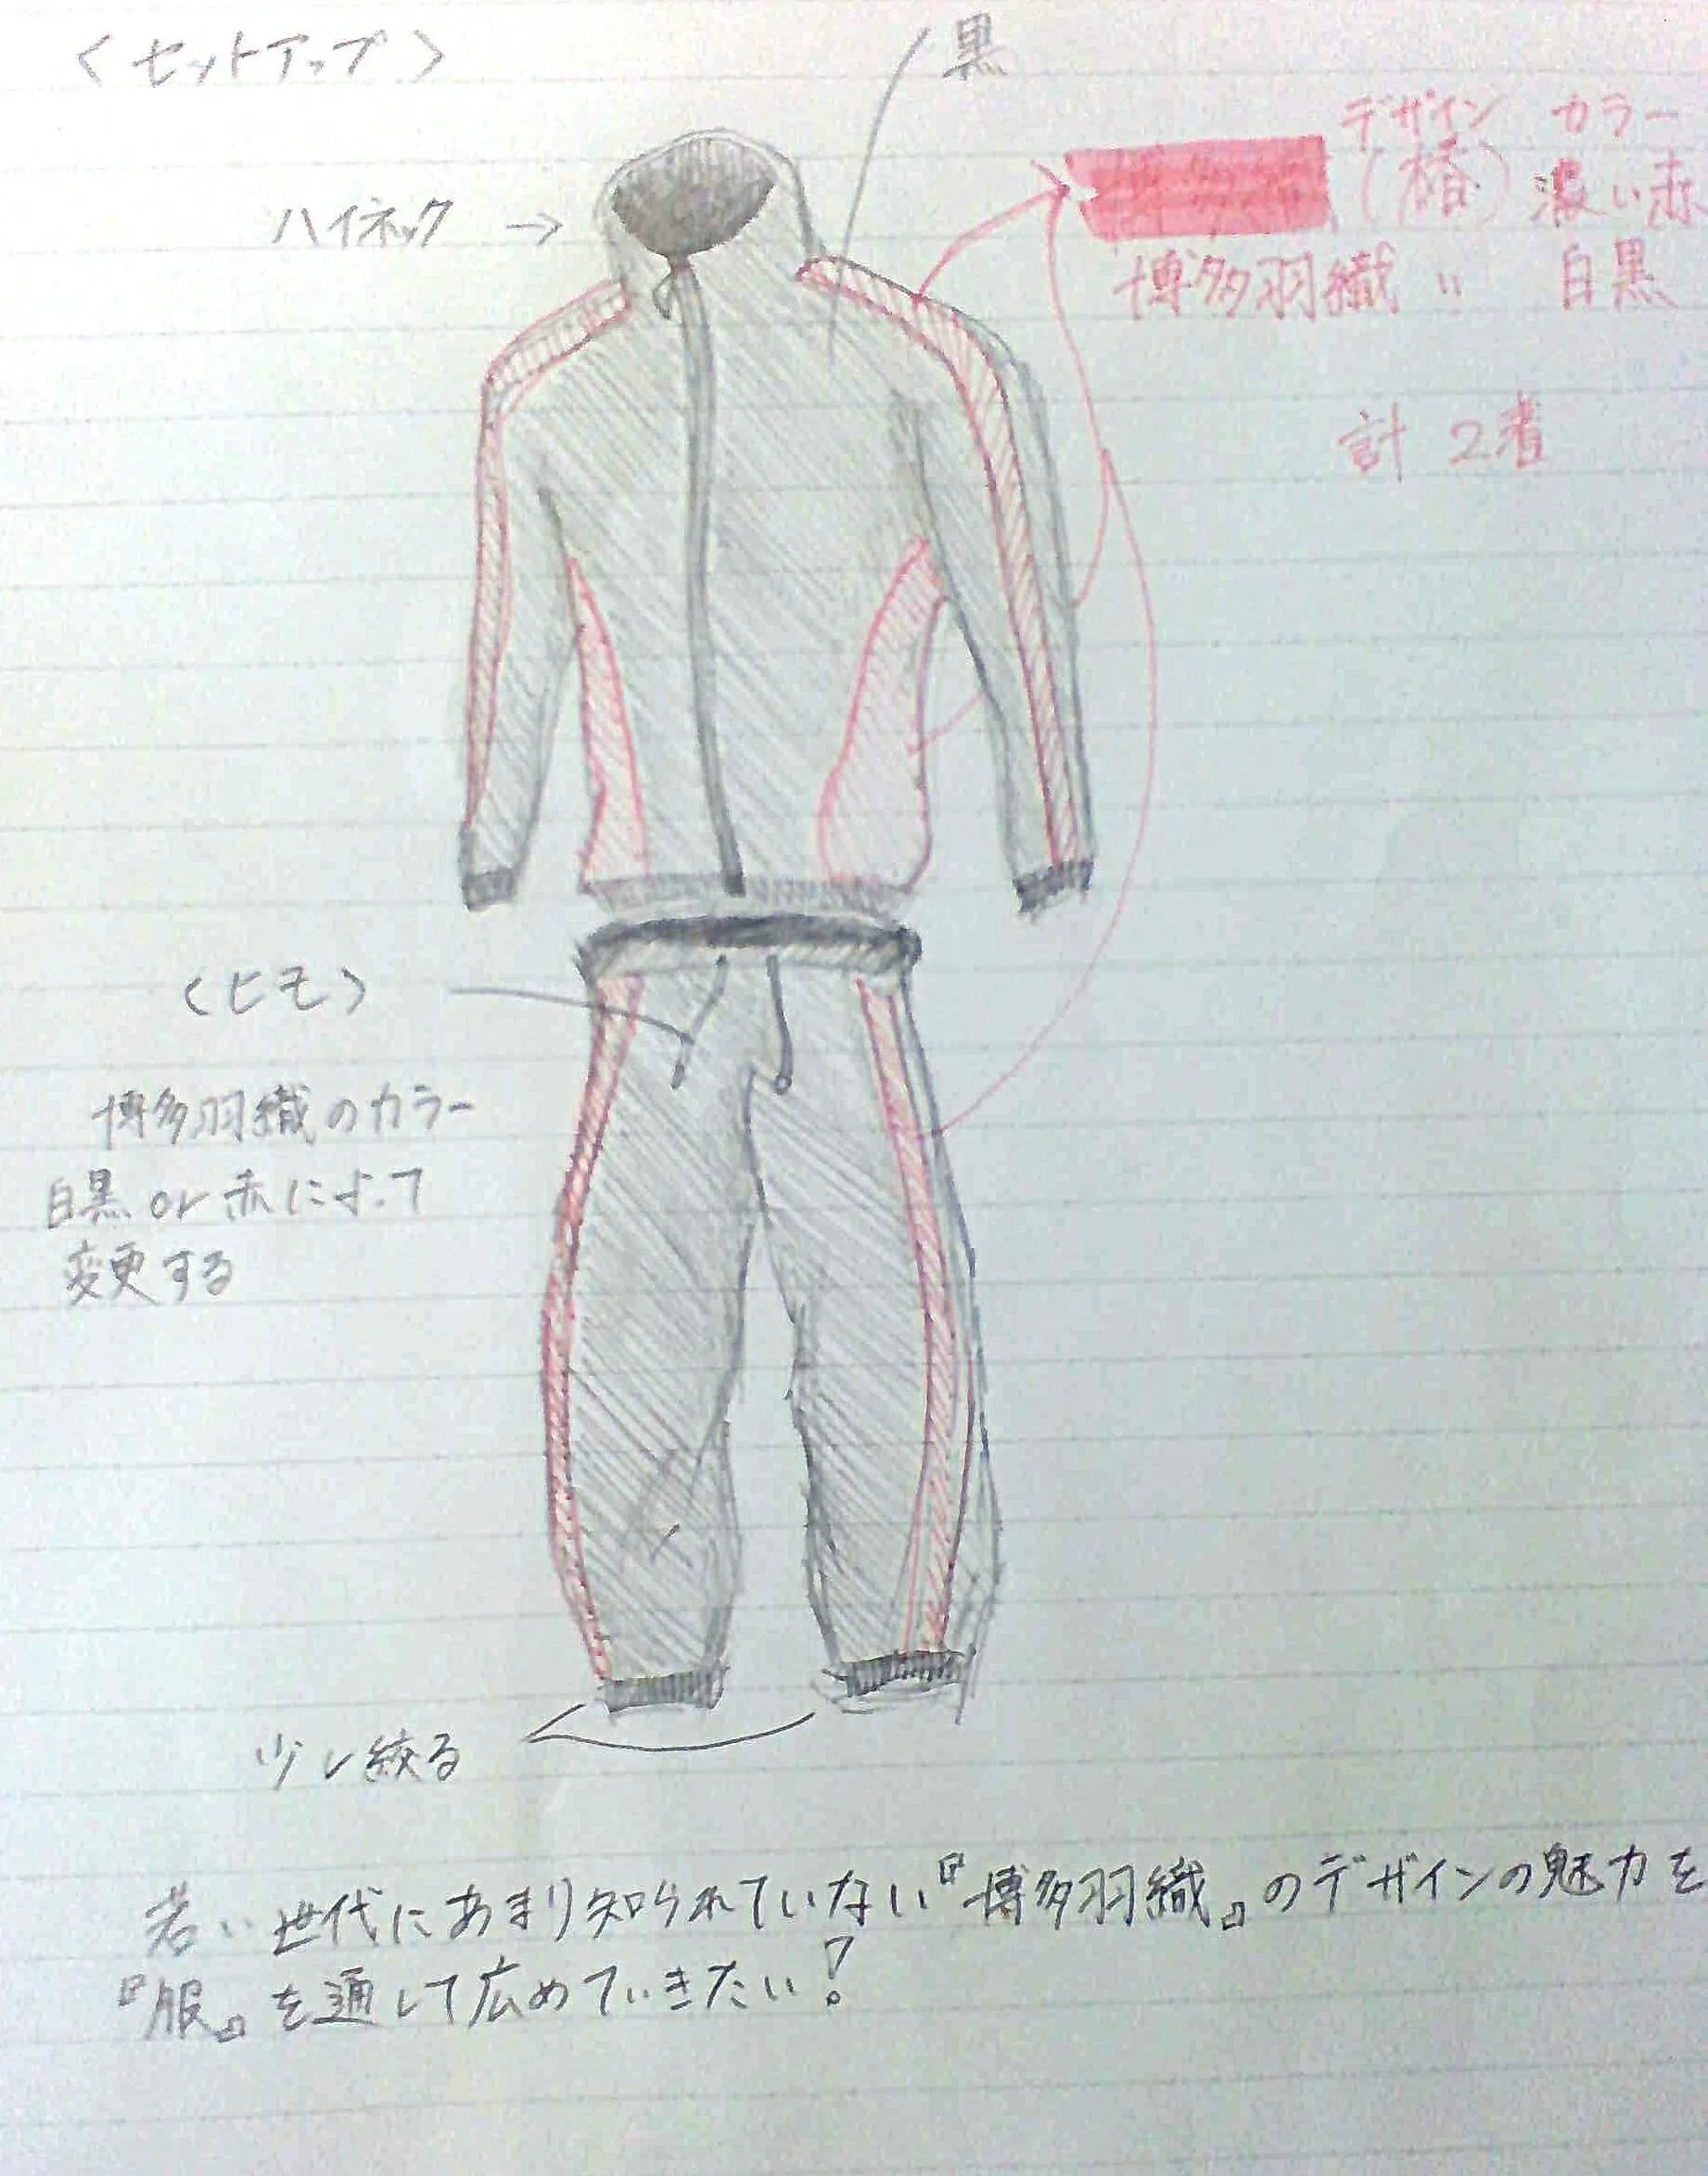 〈セットアップ〉
黒
ハイネック →
デザイン カラー
(椿) 濃い赤
博多羽織 〃 白黒
計 2着
〈ヒモ〉
博多羽織のカラー
白黒 or 赤によって
変更する
少し絞る
若い世代にあまり知られていない『博多羽織』のデザインの魅力を
『服』を通して広めていきたい!